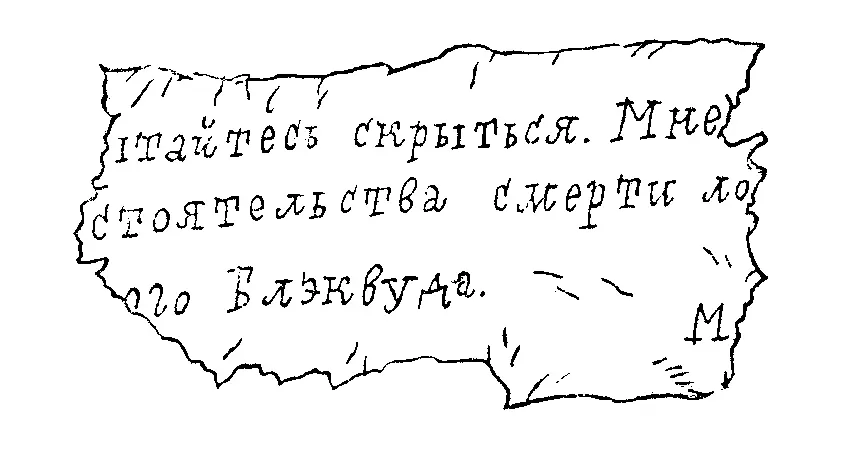 ытайтесь скрыться. Мне
стоятельства смерти ло
ого Блэквуда.
М